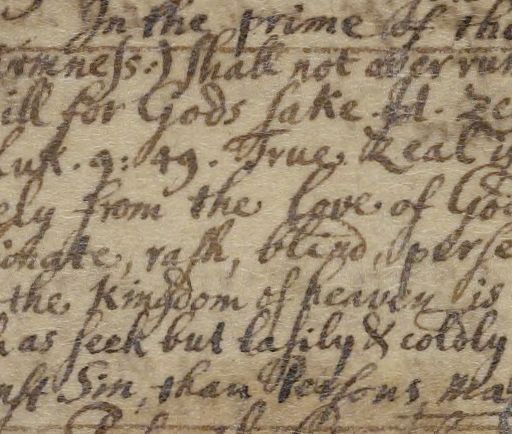 In the prime of the
rneſs.) ſhall not over run
ill for Gods ſake. H. Ze
Luk. 9: 49. True Zeal is
ely from the love of God
ionate, raſh, blind, perſe
the Kingdom of heaven is
has ſeek but laſily & coldly
nſt Sin, than Perſons, ma